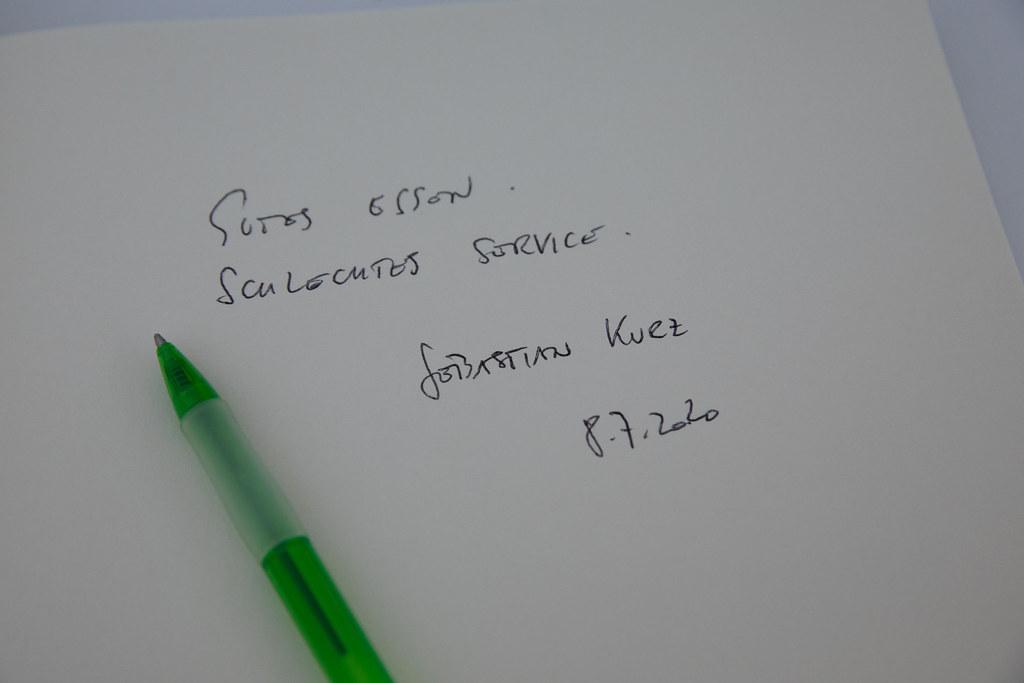 Gutes Essen.
Schlechtes Service.
Sebastian Kurz
8.7.2020